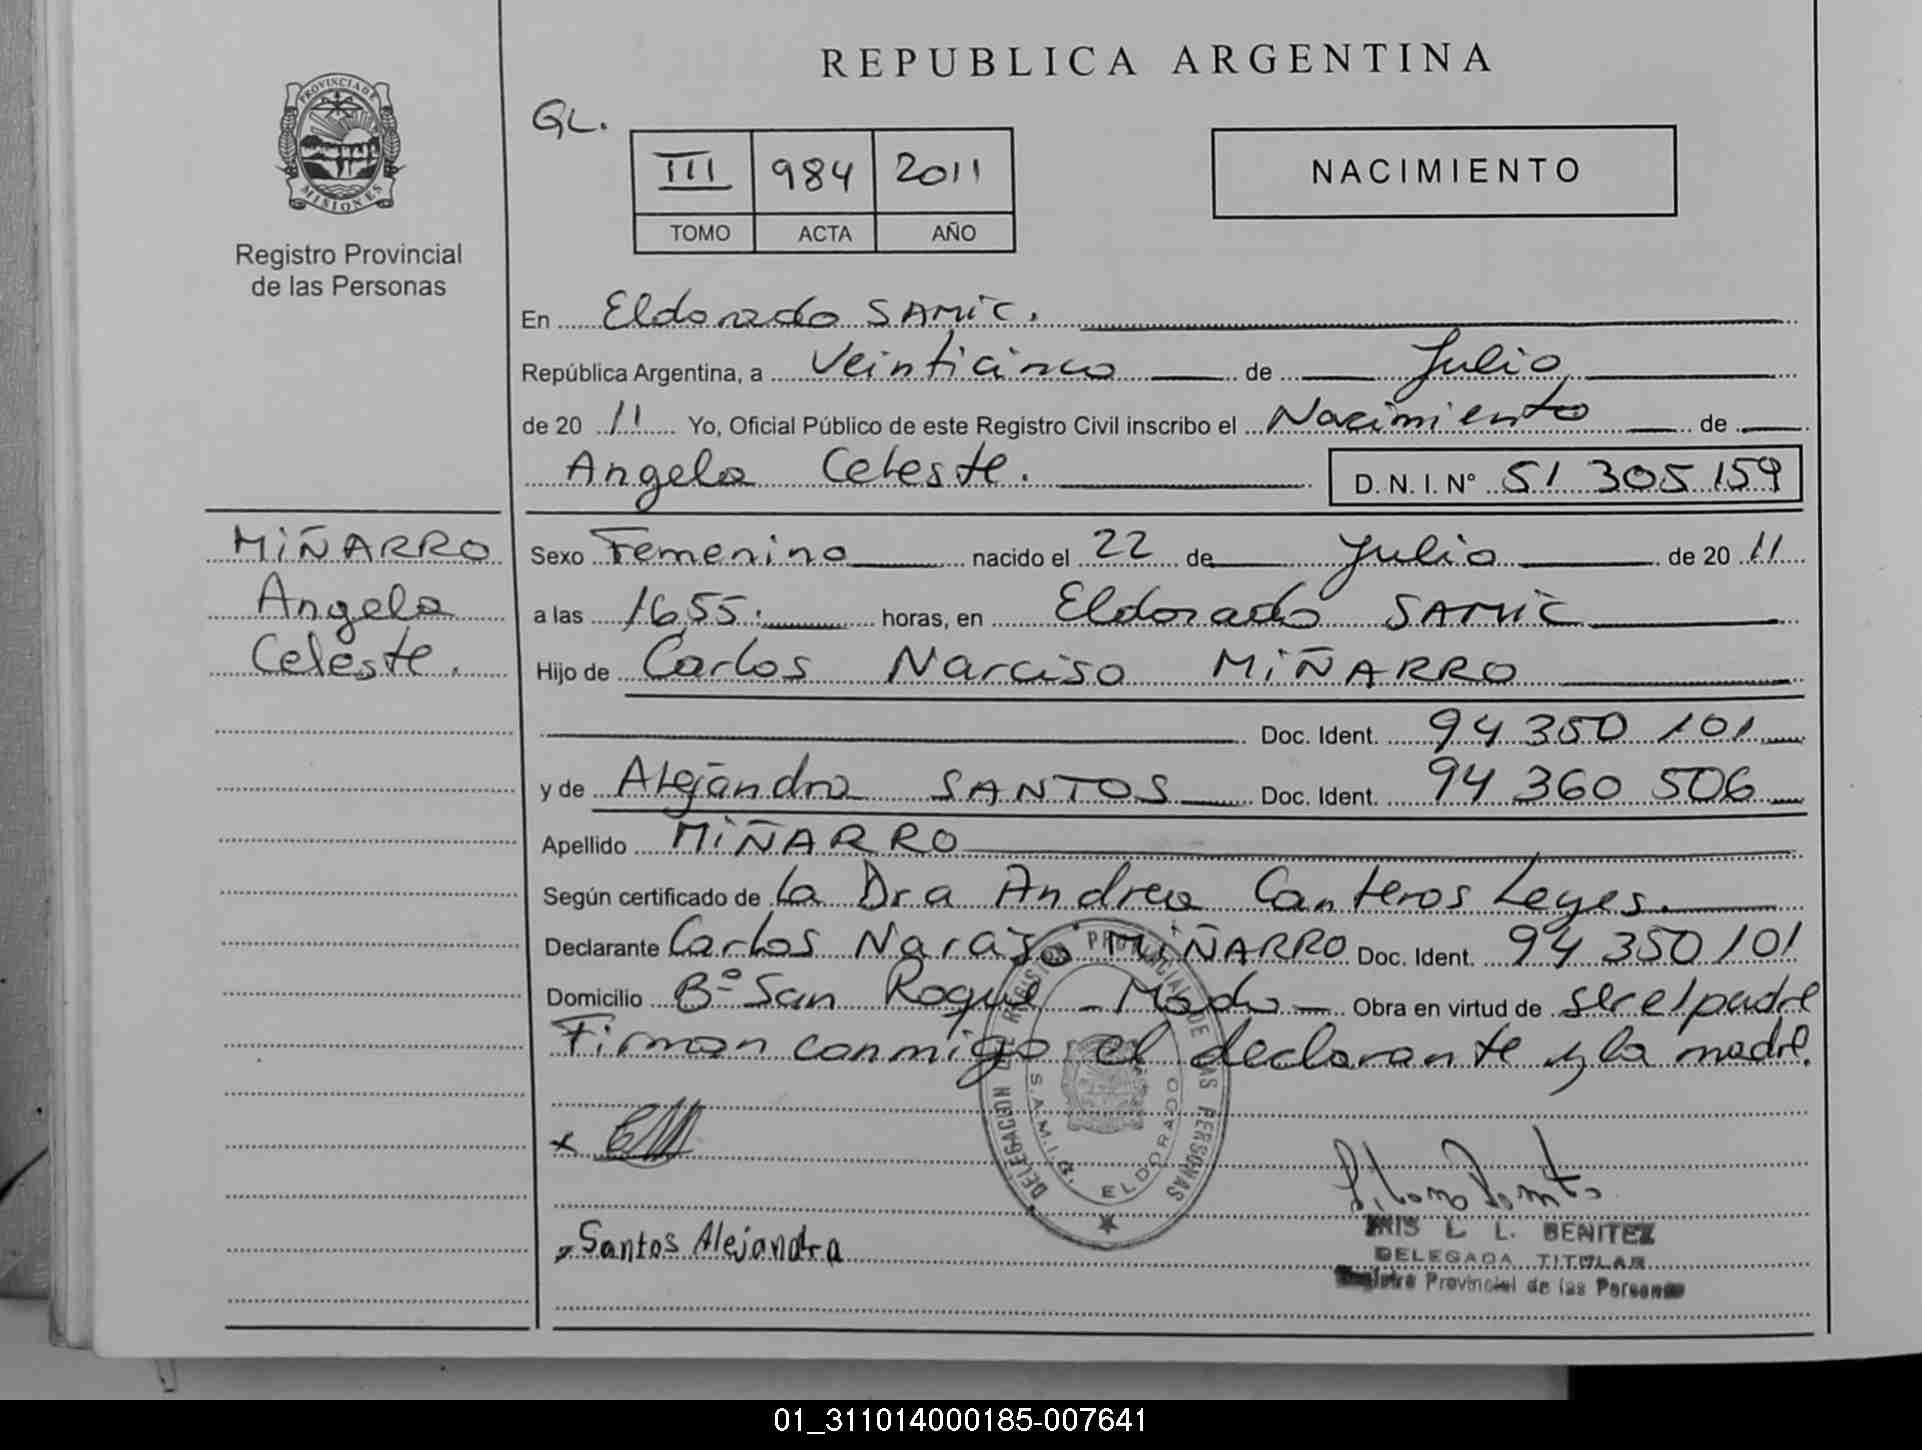 REPUBLICA ARGENTINA
PROVINCIA DE
MISIONES
Registro Provincial
de las Personas
GL.
III 984 2011
TOMO ACTA AÑO
NACIMIENTO
En Eldorado SAMIC.
República Argentina, a Veinticinco de Julio
de 20 11 Yo, Oficial Público de este Registro Civil inscribo el Nacimiento de
Angela Celeste. D. N. I. N° 51 305 159
MIÑARRO
Angela
Celeste.
Sexo Femenino nacido el 22 de Julio de 20 11
a las 16,55. horas, en Eldorado SAMIC
Hijo de Carlos Narciso MIÑARRO
Doc. Ident. 94 350 101
y de Alejandra SANTOS Doc. Ident. 94 360 506
Apellido MIÑARRO
Según certificado de la Dra Andrea Canteros Leyes.
Declarante Carlos Narciso MIÑARRO Doc. Ident. 94 350 101
Domicilio Bº San Roque - Mado - Obra en virtud de ser el padre
Firman conmigo el declarante y la madre.
DELEGACION DE REGISTRO PROVINCIAL DE LAS PERSONAS
S.A.M.I.C. ELDORADO
x
Santos Alejandra
IRIS L. L. BENITEZ
DELEGADA TITULAR
Registro Provincial de las Personas
01_311014000185-007641